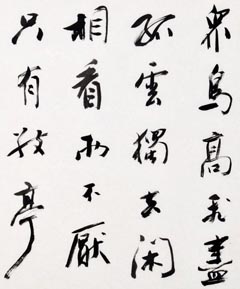 眾鳥高飛盡
孤雲獨去閑
相看兩不厭
只有敬亭